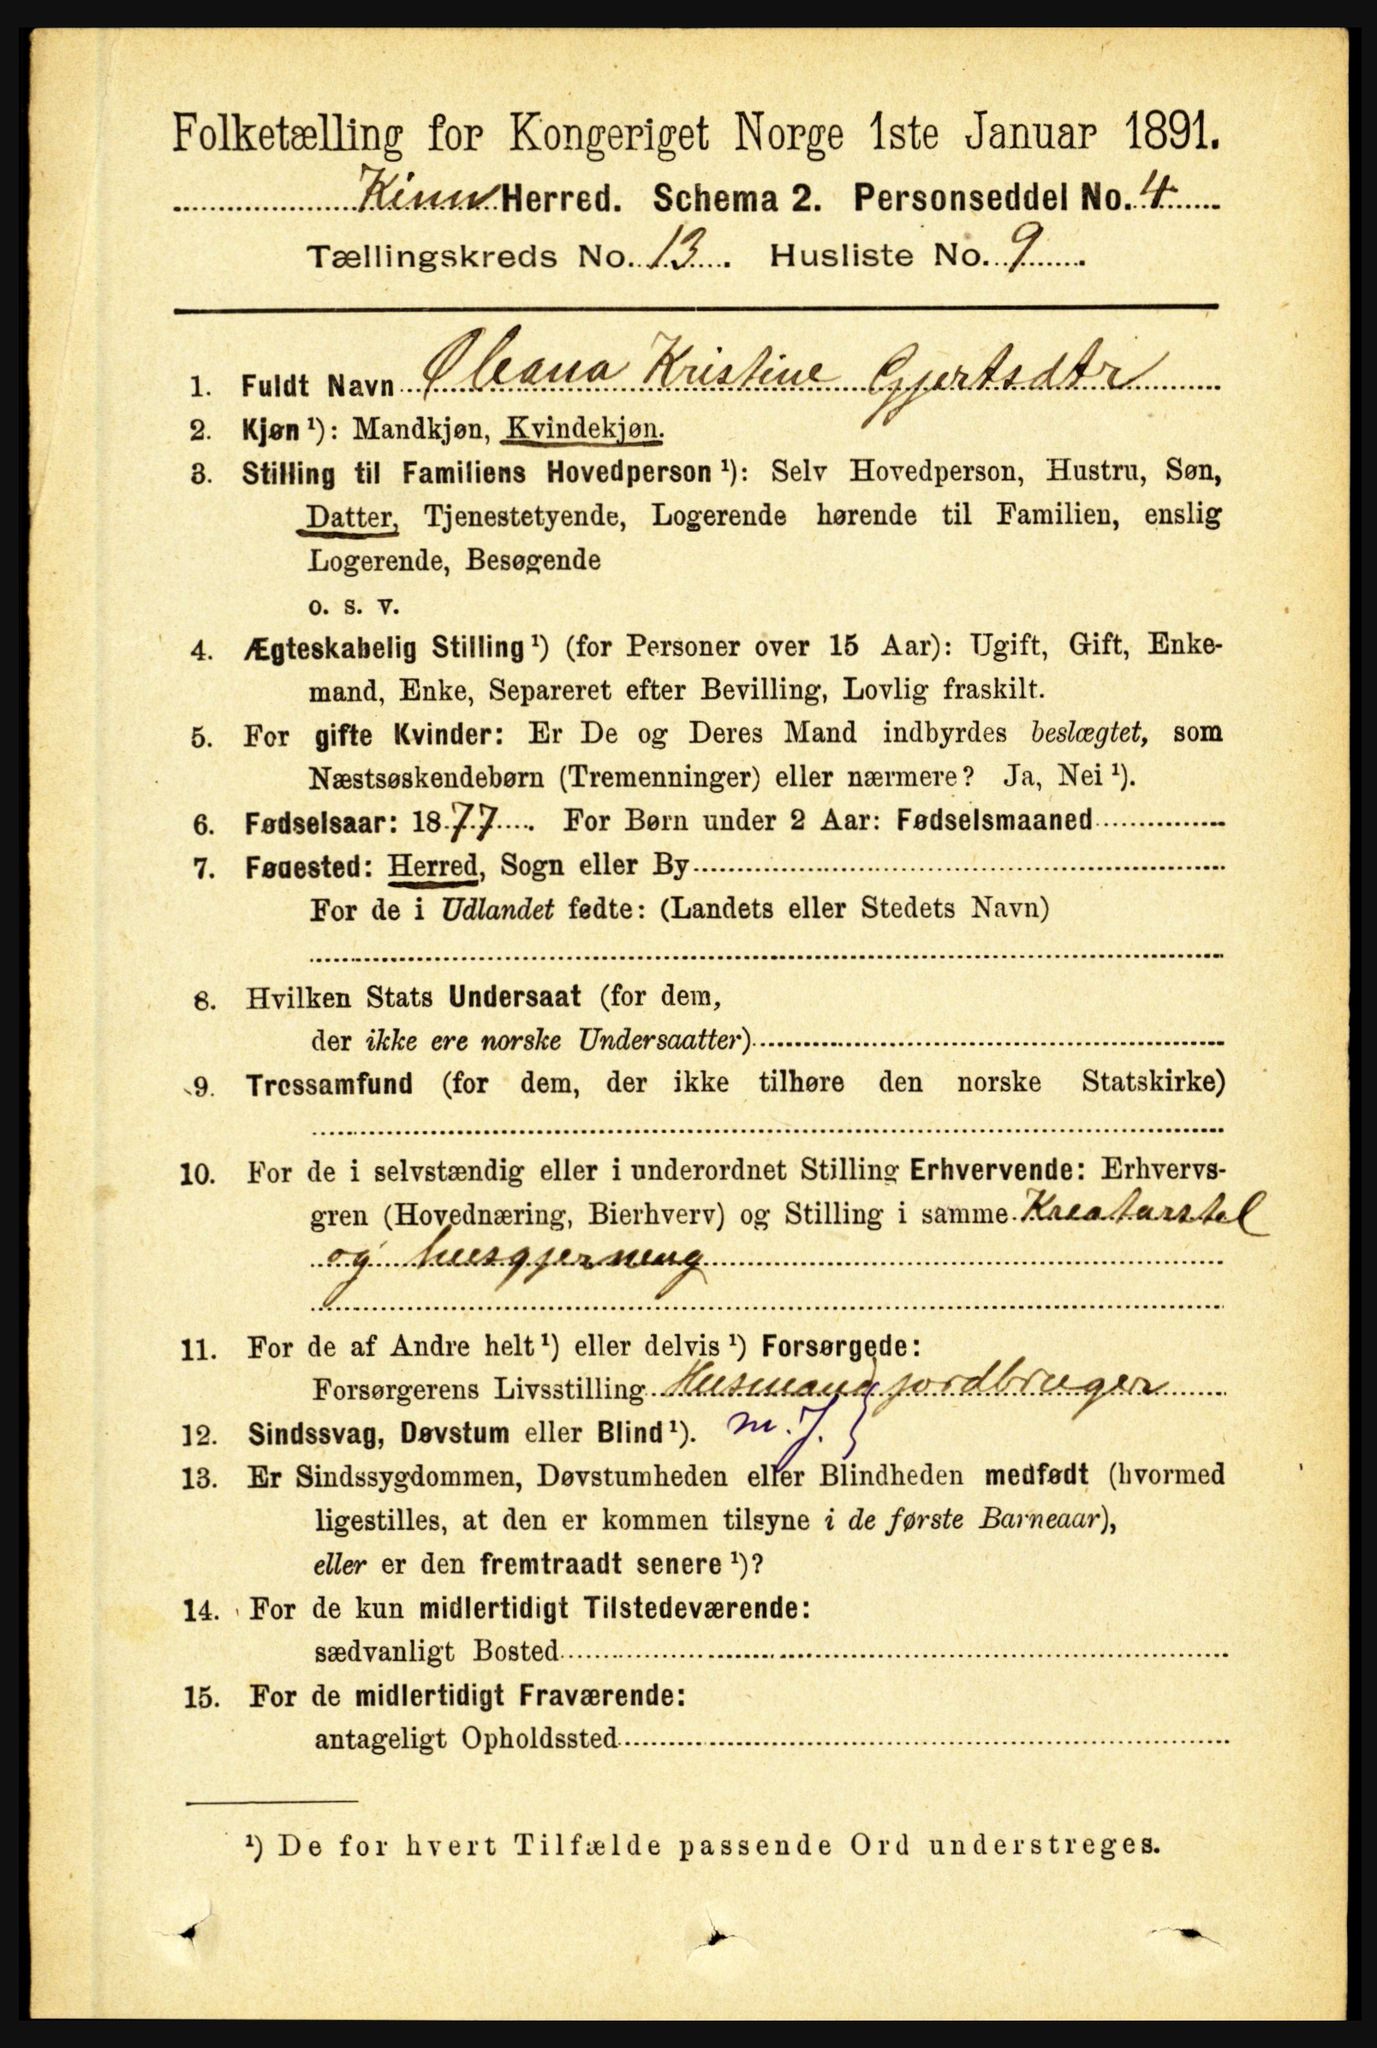 Folketælling for Kongeriget Norge 1ste Januar 1891.
Kinn Herred. Schema 2. Personseddel No. 4
Tællingskreds No. 13. Husliste No. 9
1. Fuldt Navn Oleana Kristine Gjertsdtr
2. Kjøn ¹): Mandkjøn, Kvindekjøn.
3. Stilling til Familiens Hovedperson ¹): Selv Hovedperson, Hustru, Søn,
Datter, Tjenestetyende, Logerende hørende til Familien, enslig
Logerende, Besøgende
o. s. v.
4. Ægteskabelig Stilling ¹) (for Personer over 15 Aar): Ugift, Gift, Enke-
mand, Enke, Separeret efter Bevilling, Lovlig fraskilt.
5. For gifte Kvinder: Er De og Deres Mand indbyrdes beslægtet, som
Næstsøskendebørn (Tremenninger) eller nærmere? Ja, Nei ¹).
6. Fødselsaar: 1877. For Børn under 2 Aar: Fødselsmaaned
7. Fødested: Herred, Sogn eller By
For de i Udlandet fødte: (Landets eller Stedets Navn)
8. Hvilken Stats Undersaat (for dem,
der ikke ere norske Undersaatter)
9. Trossamfund (for dem, der ikke tilhøre den norske Statskirke)
10. For de i selvstændig eller i underordnet Stilling Erhvervende: Erhvervs-
gren (Hovednæring, Bierhverv) og Stilling i samme Kreaturstel
og husgjerning
11. For de af Andre helt ¹) eller delvis ¹) Forsørgede:
Forsørgerens Livsstilling Husmand jordbruger
12. Sindssvag, Døvstum eller Blind ¹). m. J.
13. Er Sindssygdommen, Døvstumheden eller Blindheden medfødt (hvormed
ligestilles, at den er kommen tilsyne i de første Barneaar),
eller er den fremtraadt senere ¹)?
14. For de kun midlertidigt Tilstedeværende:
sædvanligt Bosted
15. For de midlertidigt Fraværende:
antageligt Opholdssted
¹) De for hvert Tilfælde passende Ord understreges.